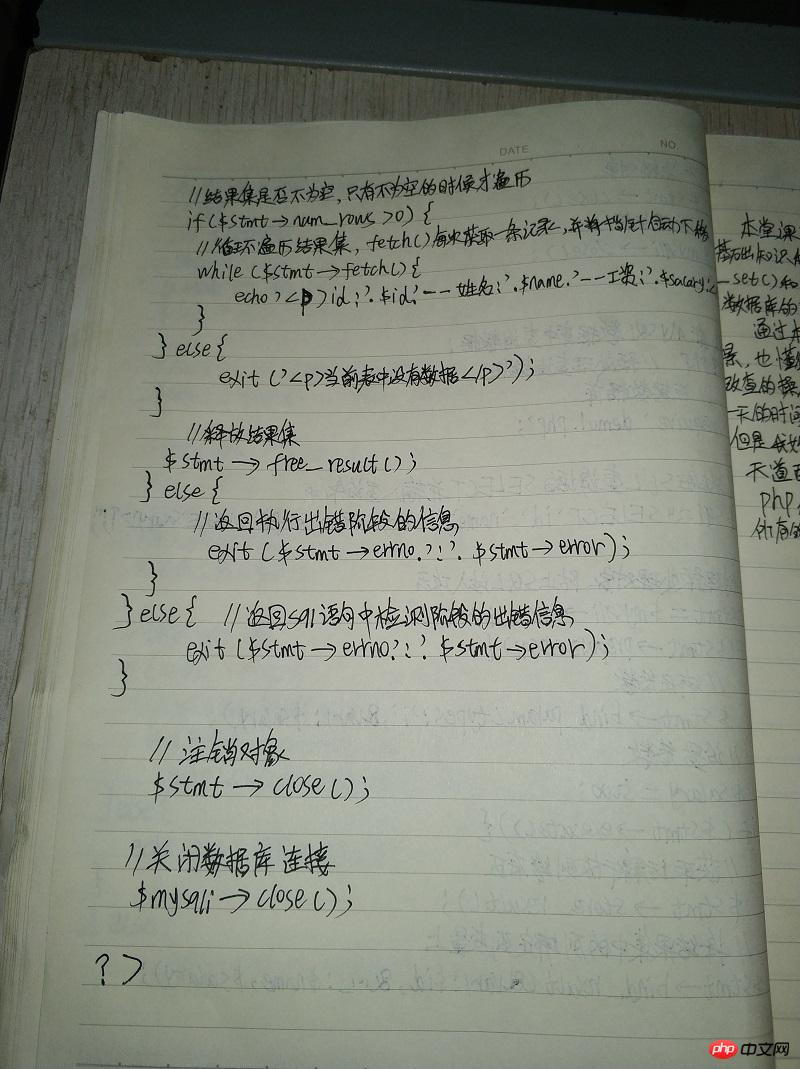 DATE
NO
//结果集是否不为空,只有不为空的时候才遍历
if($stmt→num_rows>0){
//循环遍历结果集, fetch()每次获取一条记录,并将指针自动下移
while($stmt→fetch(){
echo'<p>id:'.$id.'--姓名:'.$name.'--工资:'.$salary
}
}else{
exit('<p>当前表中没有数据</p>');
}
//释放结果集
$stmt→free_result();
}else{
//返回执行出错阶段的信息
exit($stmt→errno.':'.$stmt→error);
}
}else{ //返回sql语句中检测阶段的出错信息
exit($stmt→errno.':'.$stmt→error);
}
//注销对象
$stmt→close();
//关闭数据库连接
$mysqli→close();
?>
本堂课
基础知识
set()和
数据库的
通过本
也懂
改查的操
一天的时间
但是
天道
php
所有的
php 中文网